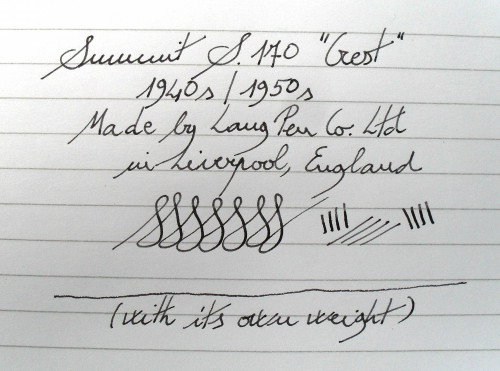 Summit S.170 "Crest"
1940s / 1950s
Made by Lang Pen Co. Ltd
in Liverpool, England
(with its own weight)